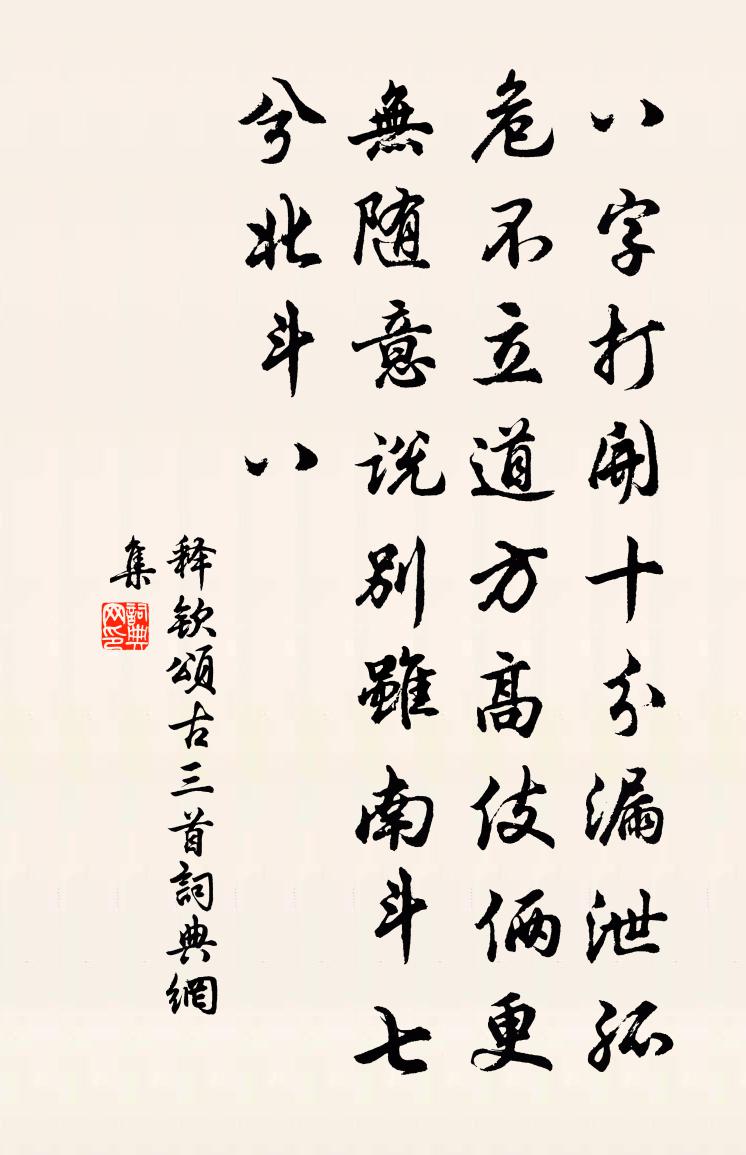 八字打開十分漏泄孤
危不立道方高伎倆更
無随意説別雖南斗七
兮北斗八
释欽頌古三首詞典網
集
詞典網印